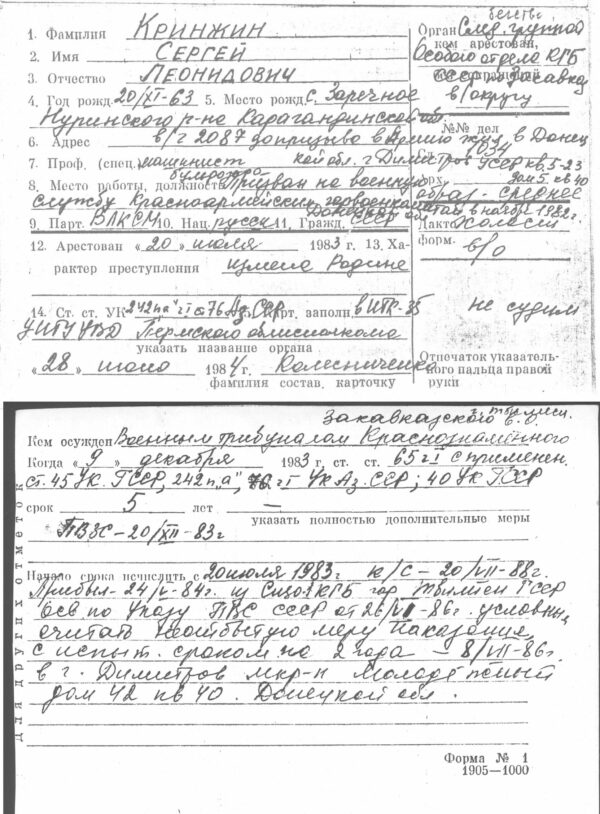 1. Фамилия Кринжин
2. Имя Сергей
3. Отчество Леонидович
4. Год рожд. 20/XI-63 5. Место рожд. с. Заречное
Нуринского р-на Карагандинской обл.
6. Адрес в/ч 2087 до призыва в Армию жил в Донец
кой обл. г Димитров ГССР кв. 5-23
дом 5. кв 40
7. Проф. (спец.) машинист бульдозера
8. Место работы, должность Призван на военную
службу Красноармейским горвоенкоматом в ноябре 1982 г.
Донецкой обл
9. Парт. ВЛКСМ 10. Нац. русск 11. Гражд. СССР
12. Арестован «20» июля 1983 г. 13. Ха-
рактер преступления измена Родине
14. Ст. ст. УК 242 п "а" ч I Аз. ССР заполн. в ИТК-35
УИТУ УВД Пермского облисполкома
указать название органа
«28» июня 1984 г. Колесниченко
фамилия состав. карточку
бегство
Орган След. группой
кем арестован,
Особого отдела КГБ
СССР по Закавказ
в/округу
№№ дел
034
образ - среднее
Дакто
форм.
б/о
не судим
Отпечаток указатель-
ного пальца правой
руки
Закавказского
Кем осужден Военным трибуналом Краснознаменного
Когда «9» декабря 1983 г. ст. ст. 65 ч I с применен.
ст. 45 Ук. ГССР, 242 п "а", ч I Ук Аз. ССР; 40 УК ГССР
срок 5 лет —
указать полностью дополнительные меры
ПВЗС - 20/XII - 83 г
Начало срока исчислить с 20 июля 1983 г. к/с - 20/VII - 88 г.
Прибыл - 24/V-84 г. из Сизо КГБ гор Тбилиси ГССР
осв по Указу ПВС СССР от 26/VI - 86 г. условно,
считать неотбытую меру наказания,
с испыт. сроком на 2 года - 8/VII-86 г.
в г. Димитров мкр-н Молодёжный
дом 42 кв 40. Донецкой обл.
Для других отметок
Форма № 1
1905—1000